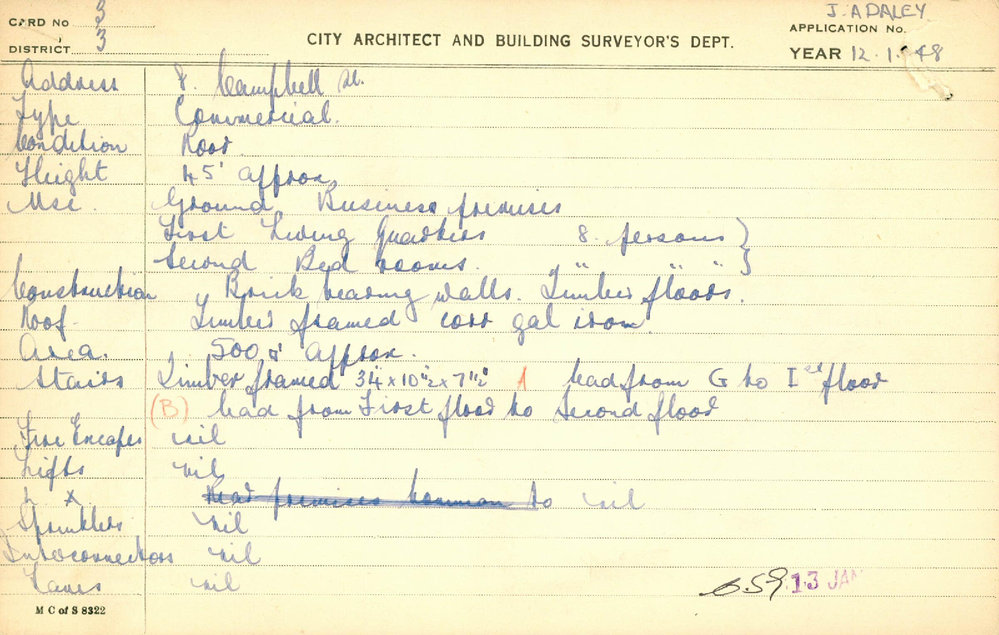 CARD No 3
DISTRICT 3
CITY ARCHITECT AND BUILDING SURVEYOR'S DEPT.
J. A DALEY
APPLICATION No.
YEAR 12.1.48
Address 8. Campbell St.
Type Commercial.
Condition Poor.
Height 45' approx
Use. Ground Business premises
First Living Quarters 8. persons }
Second Bed rooms. " " " }
Construction Brick bearing walls. Timber floors.
Roof. Timber framed corr gal iron.
Area. 500 □' approx.
Stairs Timber framed 34 x 10½ x 7½" A lead from G to 1st floor
(B) lead from First floor to Second floor
Fire Escapes nil
Lifts nil
L X Rear premises common to nil
Sprinklers nil
Interconnections nil
Lanes nil
659
13 JAN
M C of S 8322